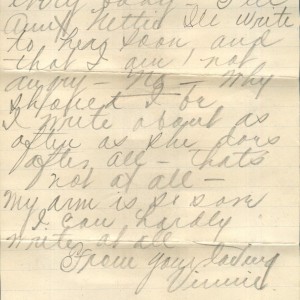 every body - Tell
Aunt Nettie I'll write
to her soon and
that I am not
angry - No - Why
should I be
I write about as
often as she does
after all - thats
not at all -
My arm is so sore
I can hardly
write at all -
From your loving
Vinnie.